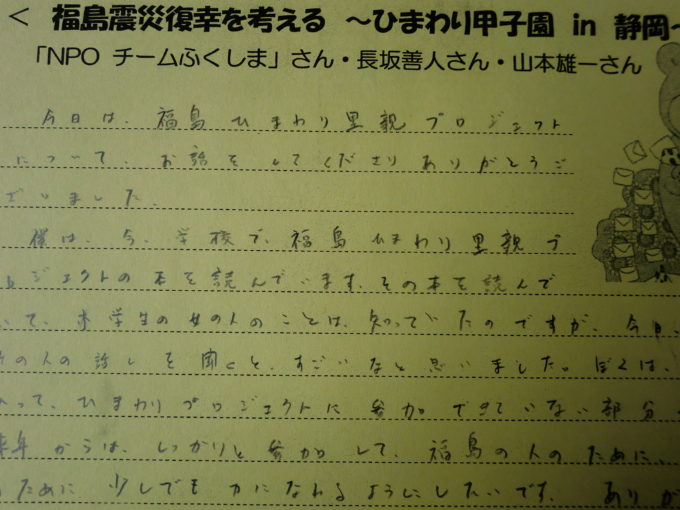 < 福島震災復幸を考える ～ひまわり甲子園 in 静岡～
「NPO チームふくしま」さん・長坂善人さん・山本雄一さん
今日は、福島ひまわり里親プロジェクト
について、お話をしてくださりありがとうご
ざいました。
僕は、今、学校で、福島ひまわり里親プ
ロジェクトの本を読んでいます。その本を読んで
いて、学生の女の人のことは、知っていたのですが、今日、
の人の話しを聞くと、すごいなと思いました。ぼくは、
って、ひまわりプロジェクトに参加できていない部分
来年からは、しっかりと参加して、福島の人のために、
ために少しでも力になれるようにしたいです。ありが